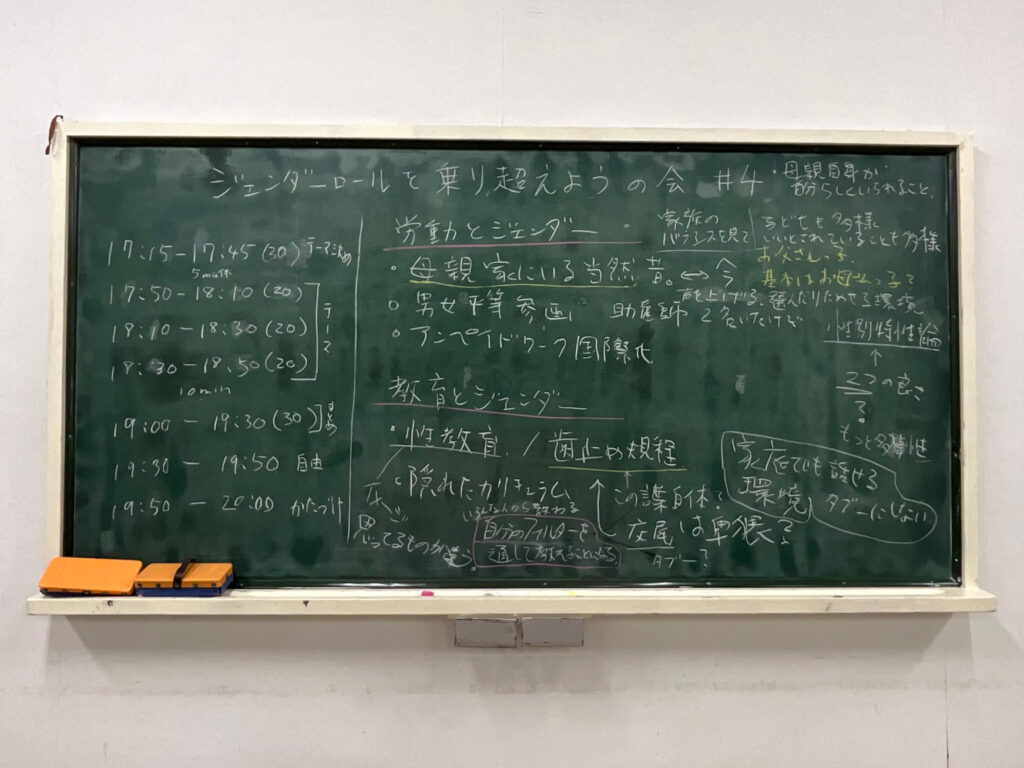 ジェンダーロールを乗り超えようの会 #4
・母親自身が
自分らしくいられること、
17:15-17:45 (30) テーマ決め
5min休
17:50-18:10 (20)
18:10-18:30 (20)
18:30-18:50 (20)
テーマ
10min
19:00-19:30 (30) まとめ
19:30-19:50 自由
19:50-20:00 かたづけ
労動とジェンダー
・母親家にいる当然 昔。↔今
・男女平等参画 助産師
・アンペイドワーク 国際化
家族の
バランスを見て
子どもも多様
いいとされていることも多様
お父さんっ子
基本はお母さんっ子?
声を上げる、選んだりたのせる環境
性別特性論
↑
2つの良さ
?
もっと多様性
教育とジェンダー
・性教育 / 歯止め規程
・隠れたカリキュラム
思ってるものが違う?
自分のフィルターを
通して教えることになる
↑この護自体?
交尾は卑猥?
タブー?
家庭でも話せる
環境
タブーにしない